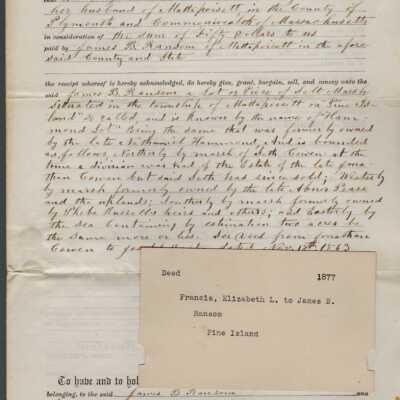 her husband of Mattapoisett in the County of
Plymouth and Commonwealth of Massachusetts
in consideration of the sum of Fifty Dollars to us
paid by James B. Ransom of Mattapoisett in the afore
said County and State
the receipt whereof is hereby acknowledged, do hereby give, grant, bargain, sell, and convey unto the
said James B Ransom a Lot or Piece of Salt Marsh
Situated in the township of Mattapoisett on "Pine Is-
land" so called, and is known by the name of "Ham-
mond Lot" Being the same that was formerly owned
by the late Nathaniel Hammond, And is bounded
as follows, Northerly by marsh of Seth Cowen at the
time a division was had of the Estate of the late Jona-
than Cowen but said Seth has since sold; Westerly
by marsh formerly owned by the late Abner Pease
and the uplands; Southerly by marsh formerly owned
by Phebe Russells heirs and others; and Easterly by
the Sea Containing by estimation two acres be
the same more or less. See Deed from Jonathan
Cowen to dated Nov 12th 1863
Deed 1877
Francis, Elizabeth L. to James B.
Ransom
Pine Island
To have and to hol
belonging, to the said James B Ransom